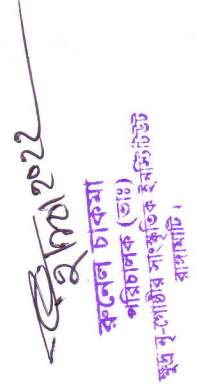 ২০২২
রুনেল চাকমা
পরিচালক (ভাঃ)
ক্ষুদ্র নৃ-গোষ্ঠীর সাংস্কৃতিক ইনস্টিটিউট
রাঙ্গামাটি।